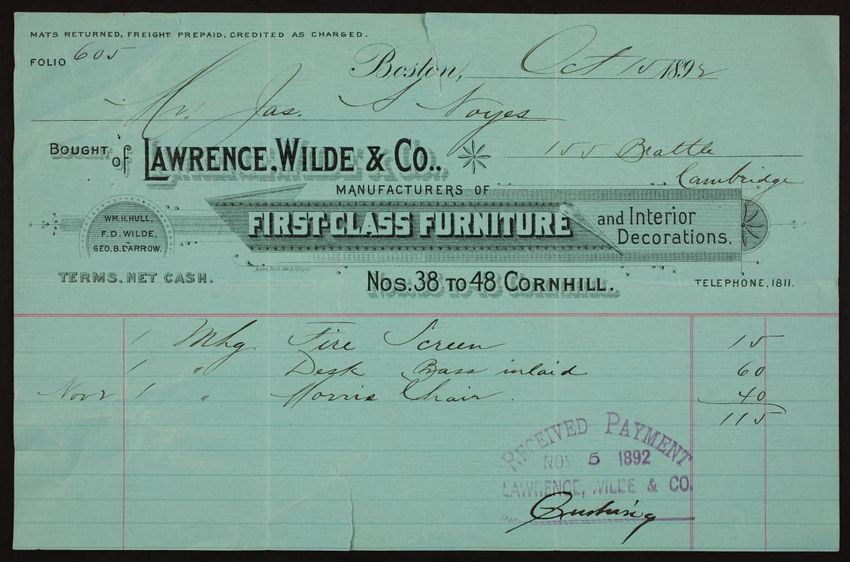 MATS RETURNED, FREIGHT PREPAID, CREDITED AS CHARGED.
FOLIO 605
Boston, Oct 15 1892
Mr. Jas. S Noyes
BOUGHT of LAWRENCE, WILDE & CO., 155 Brattle
Cambridge
MANUFACTURERS OF
FIRST-CLASS FURNITURE and Interior Decorations.
WM. H. HULL,
F. D. WILDE,
GEO. B. DARROW.
TERMS, NET CASH.
NOS. 38 TO 48 CORNHILL.
TELEPHONE, 1811.
1 Mhg. Fire Screen 15
1 " Desk Brass inlaid 60
Nov 2 1 " Morris Chair. 40
115
RECEIVED PAYMENT
NOV 5 1892
LAWRENCE, WILDE & CO.